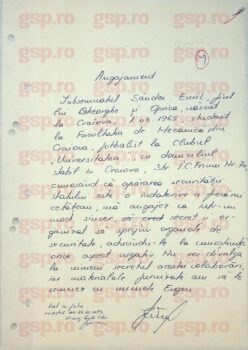 gsp.ro gsp.ro gsp.ro
9
Angajament
Subsemnatul Săndoi Emil, fiul
lui Gheorghe și Oprița, născut
în Craiova, 1.03.1965, student
la Facultatea de Mecanică din
Craiova, fotbalist la Clubul
Universitatea, cu domiciliul
stabil în Craiova, Str. I.C. Frimu Nr.
cunoscînd că apărarea securității
statului este o îndatorire a fiecărui
cetățean mă angajez ca într-un
mod sincer, secret și or-
ganizat să sprijin organele de
securitate, aducîndu-le la cunoștință
orice aspect negativ. Nu voi divulga
la nimeni secretul acestei colaborări,
iar materialele furnizate am să le
semnez cu numele Eugen.
Dat în fața